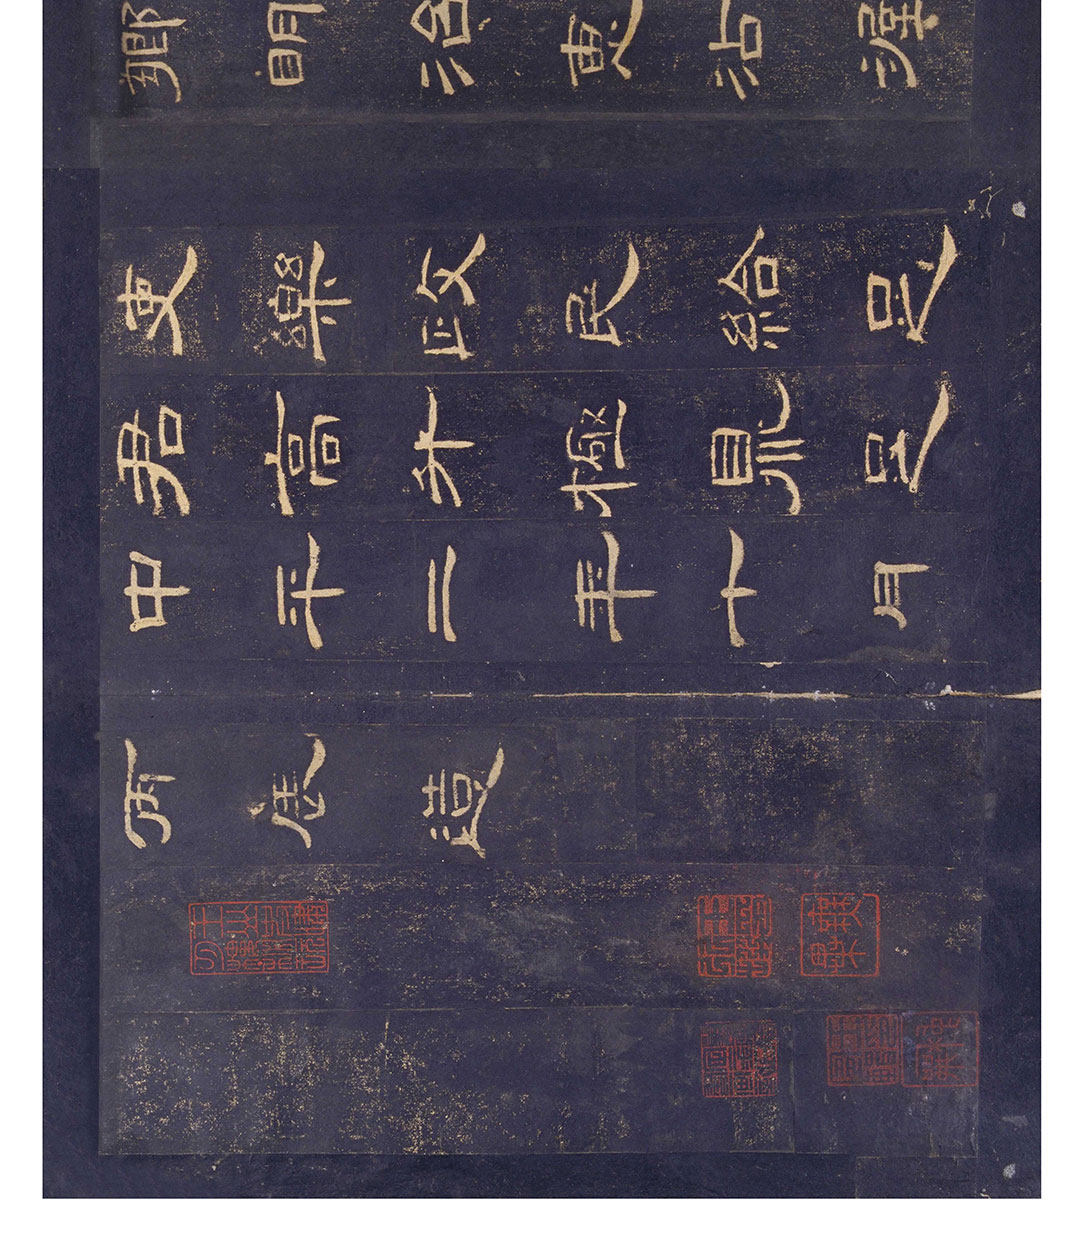 鄉明治惠沾渥
吏樂政民給足
君高升極鼎足
中平二年十月
丙辰造